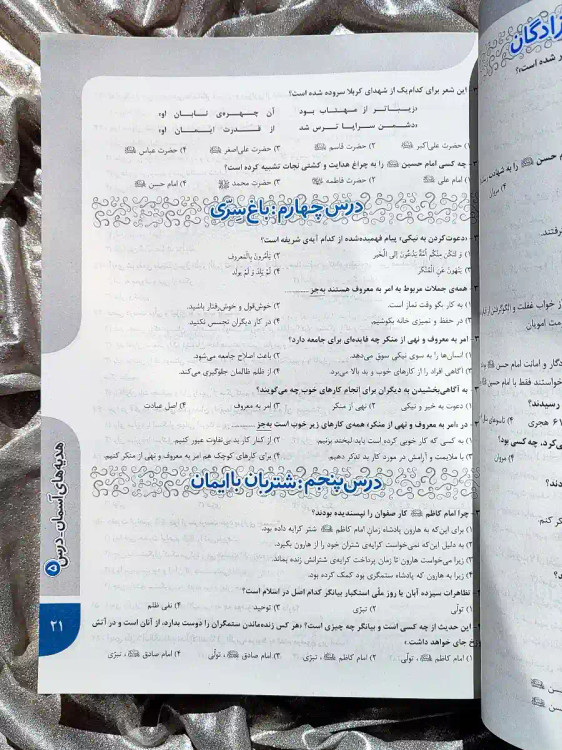 این شعر برای کدام‌یک از شهدای کربلا سروده شده است؟
«زیباتر از مهتاب بود آن چهره‌ی تابان او»
«دشمن سراپا ترس شد از قدرت ایمان او»
۱) حضرت علی‌اکبر ۲) حضرت قاسم ۳) حضرت علی‌اصغر ۴) حضرت عباس
چه کسی امام حسین را به چراغ هدایت و کشتی نجات تشبیه کرده است؟
۱) امام علی ۲) حضرت فاطمه ۳) حضرت محمد ۴) امام حسن
درس چهارم: باغ سرّی
«دعوت‌کردن به نیکی» پیام فهمیده‌شده از کدام آیه‌ی شریفه است؟
۱) وَ لتَکُن مِنکُم اُمَّةٌ یَدعُونَ اِلَی الْخَیر ۲) یَأمُرونَ بِالْمَعروف
۳) یَنهَونَ عَنِ الْمُنکَر ۴) لَم یَلِد وَ لَم یولَد
همه‌ی جملات مربوط به امر به معروف هستند به‌جز
۱) به کار بگو وقت نماز است. ۲) خوش‌قول و خوش‌رفتار باشید.
۳) در حفظ و تمیزی خانه بکوشیم. ۴) در کار دیگران تجسس نکنید.
امر به معروف و نهی از منکر چه فایده‌ای برای جامعه دارد؟
۱) انسان‌ها را به سوی نیکی سوق می‌دهد. ۲) باعث اصلاح جامعه می‌شود.
۳) آگاهی افراد را از کارهای خوب و بد بالا می‌برد. ۴) از ظلم ظالمان جلوگیری می‌کند.
به آگاهی‌بخشیدن به دیگران برای انجام کارهای خوب چه می‌گویند؟
۱) دعوت به خیر و نیکی ۲) نهی از منکر ۳) امر به معروف ۴) اصل عبادت
در «امر به معروف و نهی از منکر» همه‌ی کارهای زیر خوب است به‌جز
۱) به کسی که کار خوبی کرده است باید لبخند بزنیم. ۲) از کنار کار بد بی‌تفاوت عبور کنیم.
۳) با ملایمت و آرامش در مورد کار بد تذکر دهیم. ۴) برای کارهای کوچک هم امر به معروف و نهی از منکر کنیم.
درس پنجم: شتربان باایمان
چرا امام کاظم کار صفوان را نپسندیده بودند؟
۱) برای این‌که به هارون پادشاه زمان امام کاظم شتر کرایه داده بود.
۲) به دلیل این‌که نمی‌خواست کرایه‌ی شتران خود را از هارون بگیرد.
۳) زیرا می‌خواست هارون تا زمان پرداخت کرایه‌ی شترانش زنده بماند.
۴) زیرا به هارون که پادشاه ستمگری بود کمک کرده بود.
تظاهرات سیزده آبان یا روز ملّی استکبار بیانگر کدام اصل در اسلام است؟
۱) تولّی ۲) تبرّی ۳) توحید ۴) نفی ظلم
این حدیث از چه کسی است و بیانگر چه چیزی است؟ «هر کس زنده‌ماندن ستمگران را دوست بدارد، از آنان است و در آتش
دوزخ جای خواهد داشت.»
۱) امام کاظم ، تولّی ۲) امام کاظم ، تبرّی ۳) امام صادق ، تولّی ۴) امام صادق ، تبرّی
هدیه‌های آسمان - درس ۵
۲۱
زادگان
ر شده است؟
حسن را به شهادت رساند
۴) مروان
رفتند.
از خواب غفلت و الگوگرفتن از قیام
مت امویان
خواستند فقط با امام حسین
رسیدند؟
۶۱ هجری
می‌کرد، چه کسی بود؟
۴) مروان
دند؟
کر کنم.